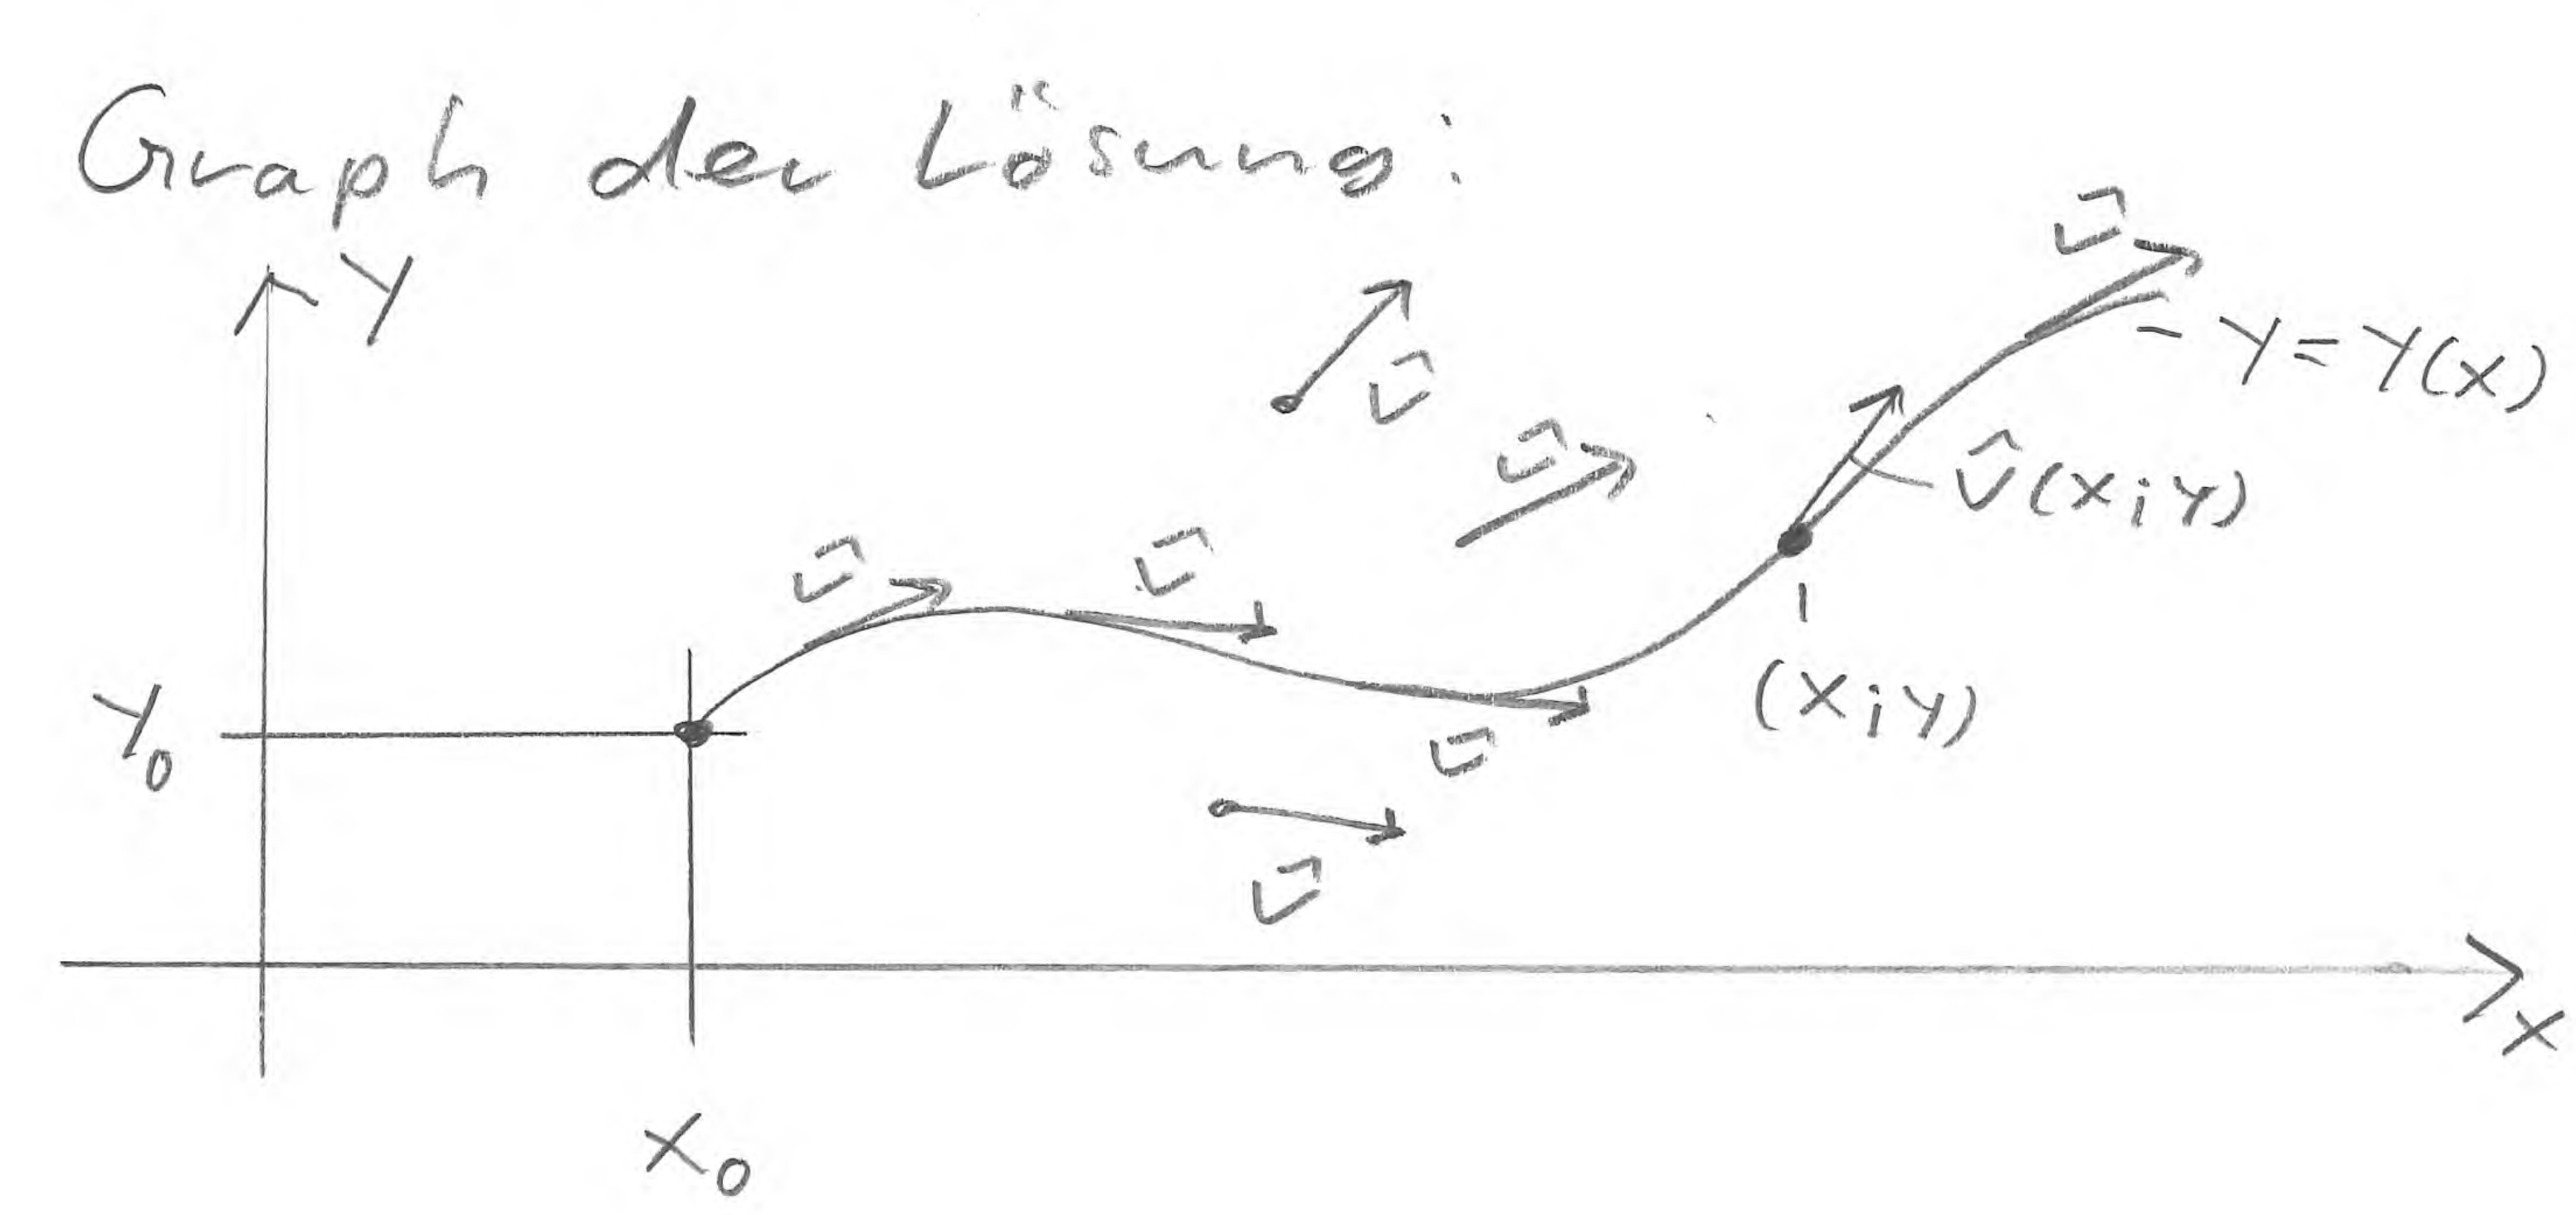 Graph der Lösung:
Y
v̂
Y = Y(X)
v̂
v̂
v̂(X;Y)
v̂
v̂
(X;Y)
Y₀
v̂
v̂
X
X₀